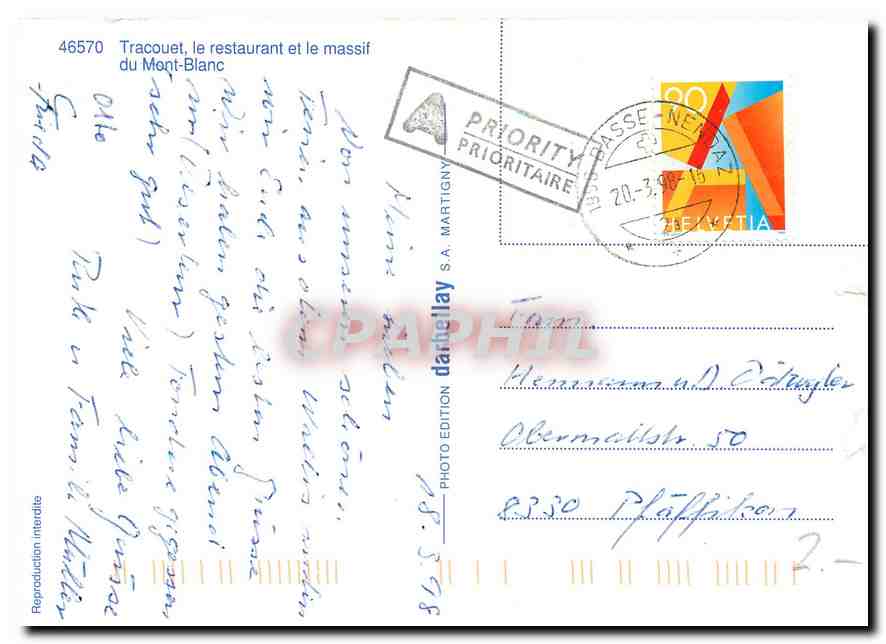 46570 Tracouet, le restaurant et le massif
du Mont-Blanc
18.3.98
Meine lieben
Von unseren schönen
Ferien aus dem Wallis senden
wir Euch die besten Grüsse
Wir haben gestern Abend
Fondue gegessen
sehr gut) Viele liebe Grüsse
Otto
Familie Müller
Reproduction interdite
PHOTO EDITION darbellay S.A. MARTIGNY
A PRIORITY
PRIORITAIRE
90
HELVETIA
BASSE-NENDAZ
20.-3.98-15
CPAPHIL
Fam.
Hermann u.
Obermattstr. 50
8330 Pfäffikon
2.-